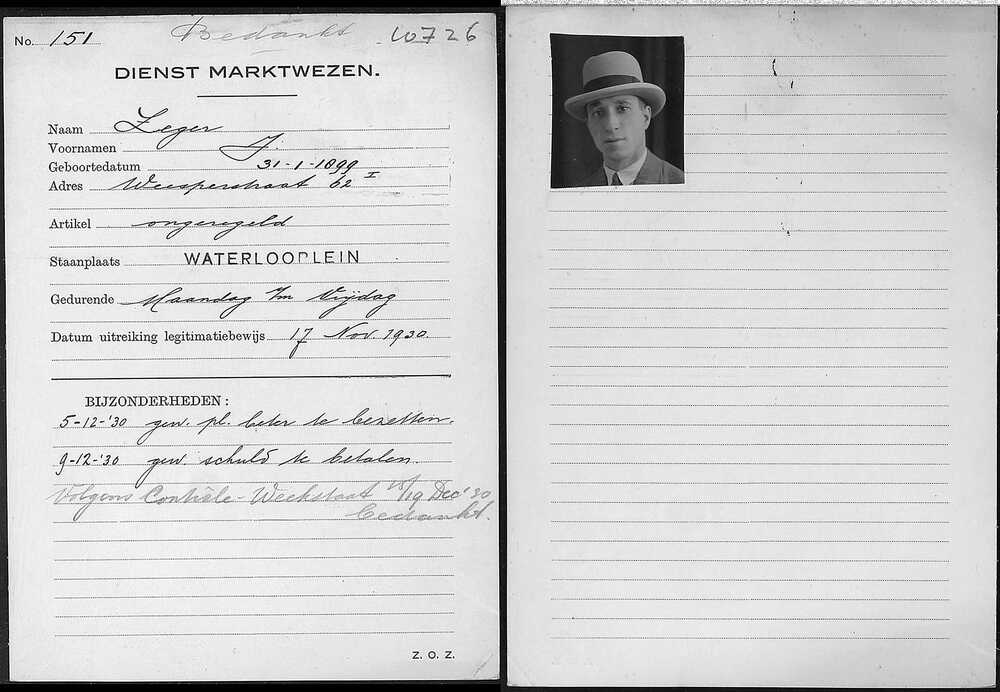 No. 151 Bedankt W726
DIENST MARKTWEZEN.
Naam Zeger
Voornamen J
Geboortedatum 31-1-1899
Adres Weesperstraat 62 I
Artikel ongeregeld
Staanplaats WATERLOOPLEIN
Gedurende Maandag t/m Vrijdag
Datum uitreiking legitimatiebewijs 17 Nov. 1930.
BIJZONDERHEDEN:
5-12-'30 gew. pl. beter te bezetten.
9-12-'30 gew. schuld te betalen.
Volgens Contrôle-Weekstaat 15/19 Dec '30
bedankt.
Z. O. Z.